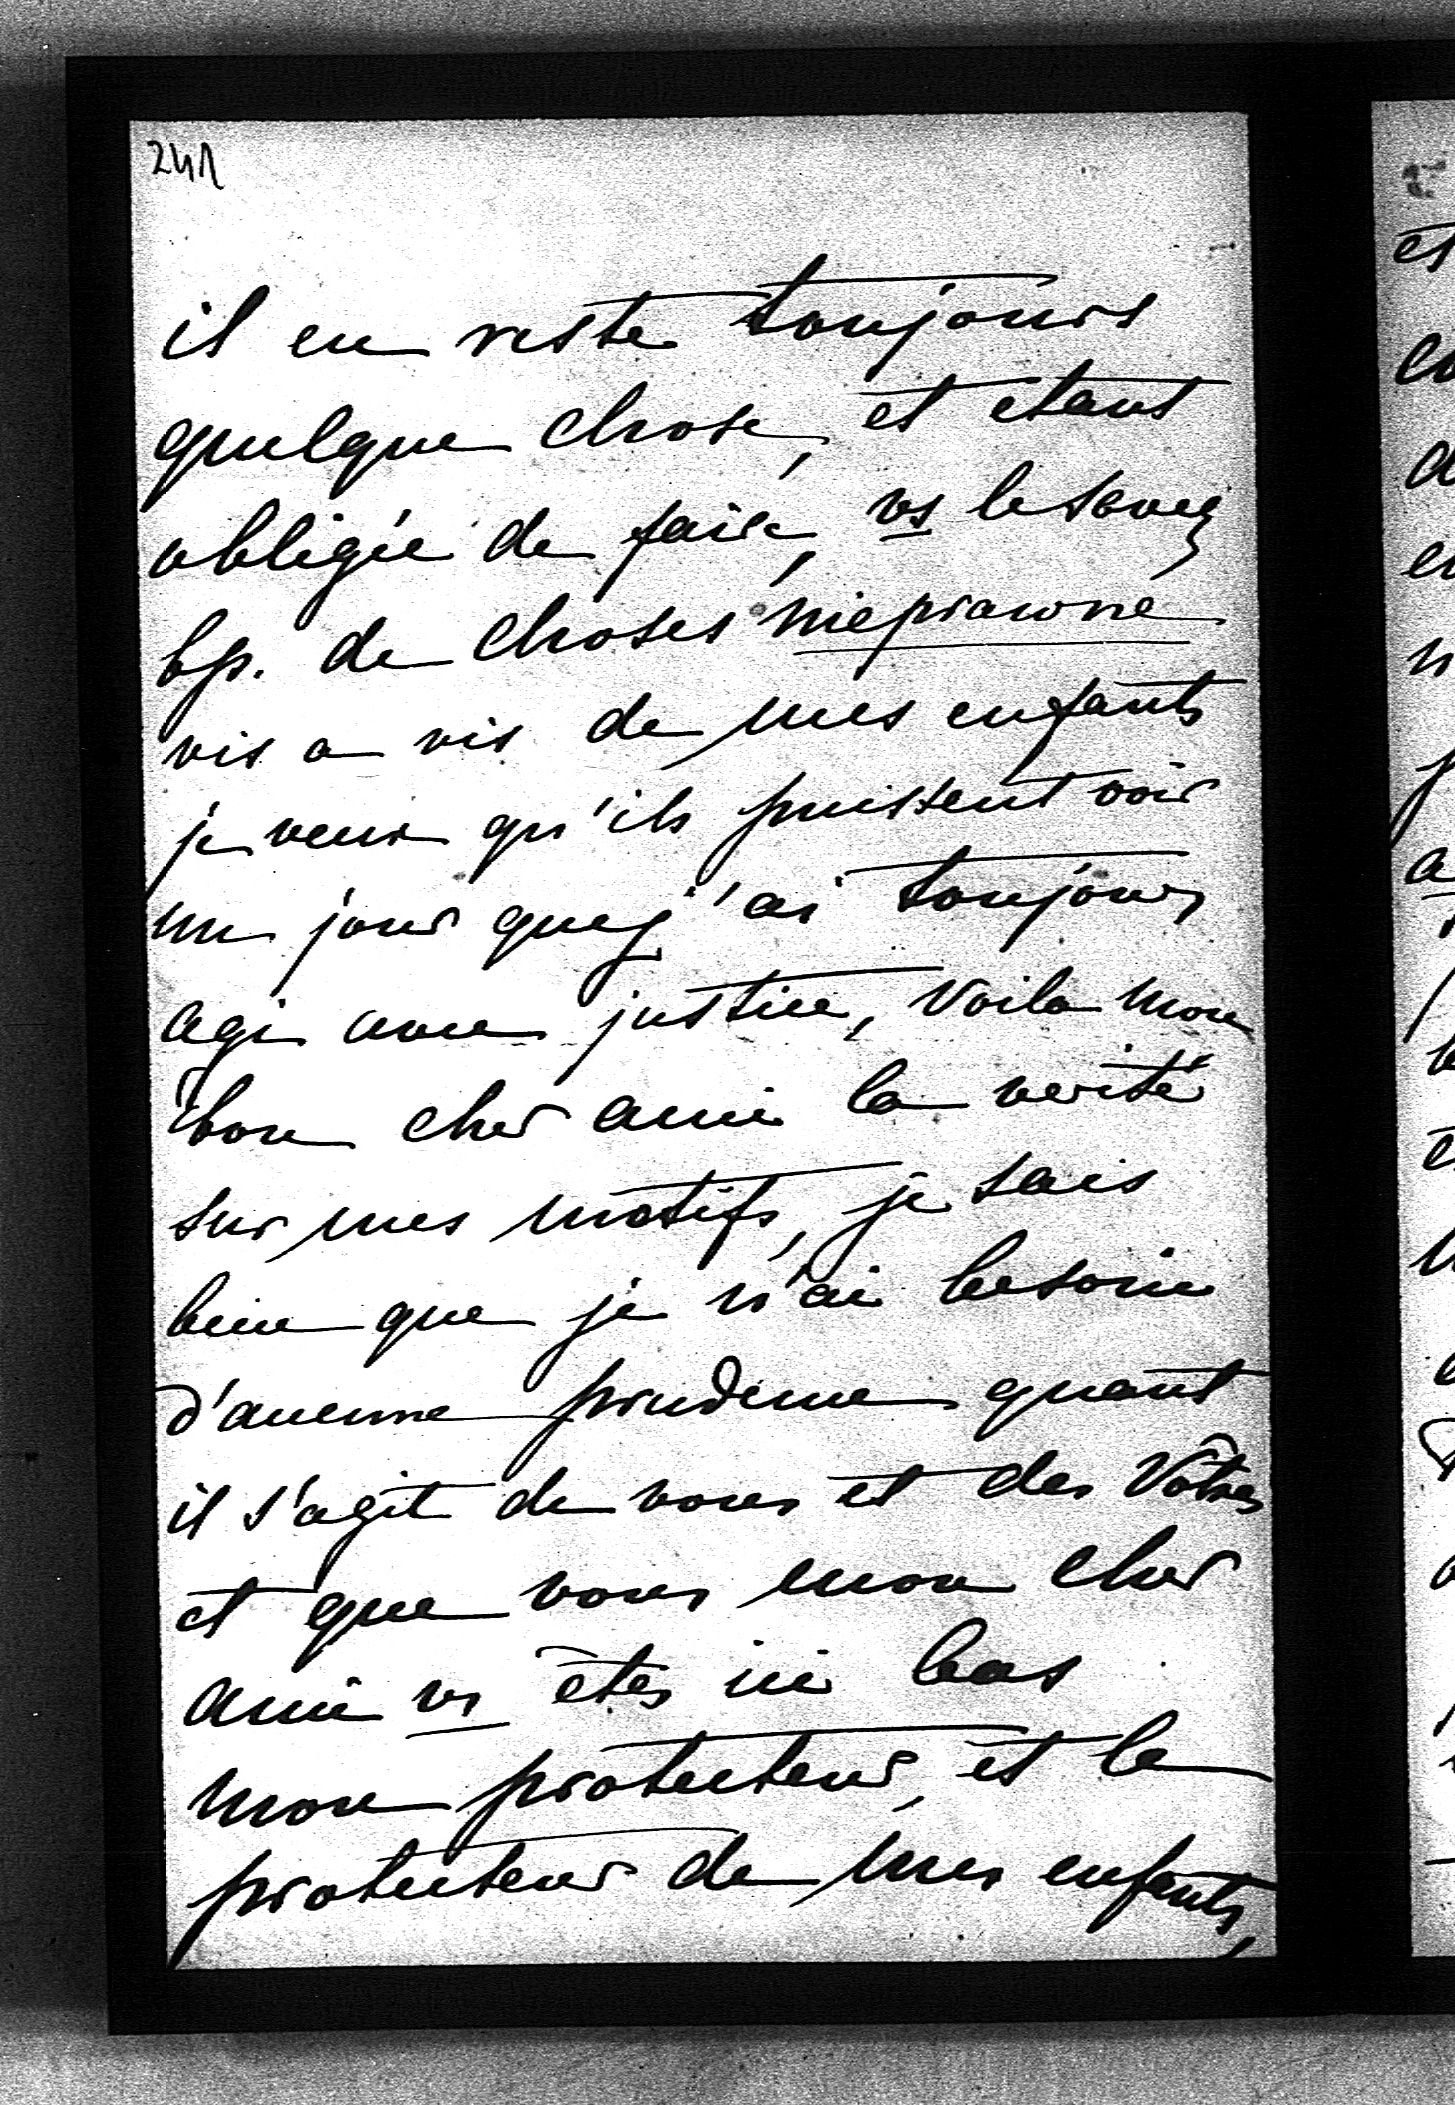 241
il en reste toujours
quelque chose, et etant
obligée de faire, vs le savez
bp. de choses nieprawne
vis a vis de mes enfants
je veux qu'ils puissent voir
un jour que j'ai toujours
agi avec justice, Voila mon
bon cher ami la verité
sur mes motifs, je sais
bien que je n'ai besoin
d'aucune prudence quant
il s'agit de vous et des Vôtres
et que vous mon cher
ami vs êtes ici bas
mon protecteur, et le
protecteur de mes enfants,